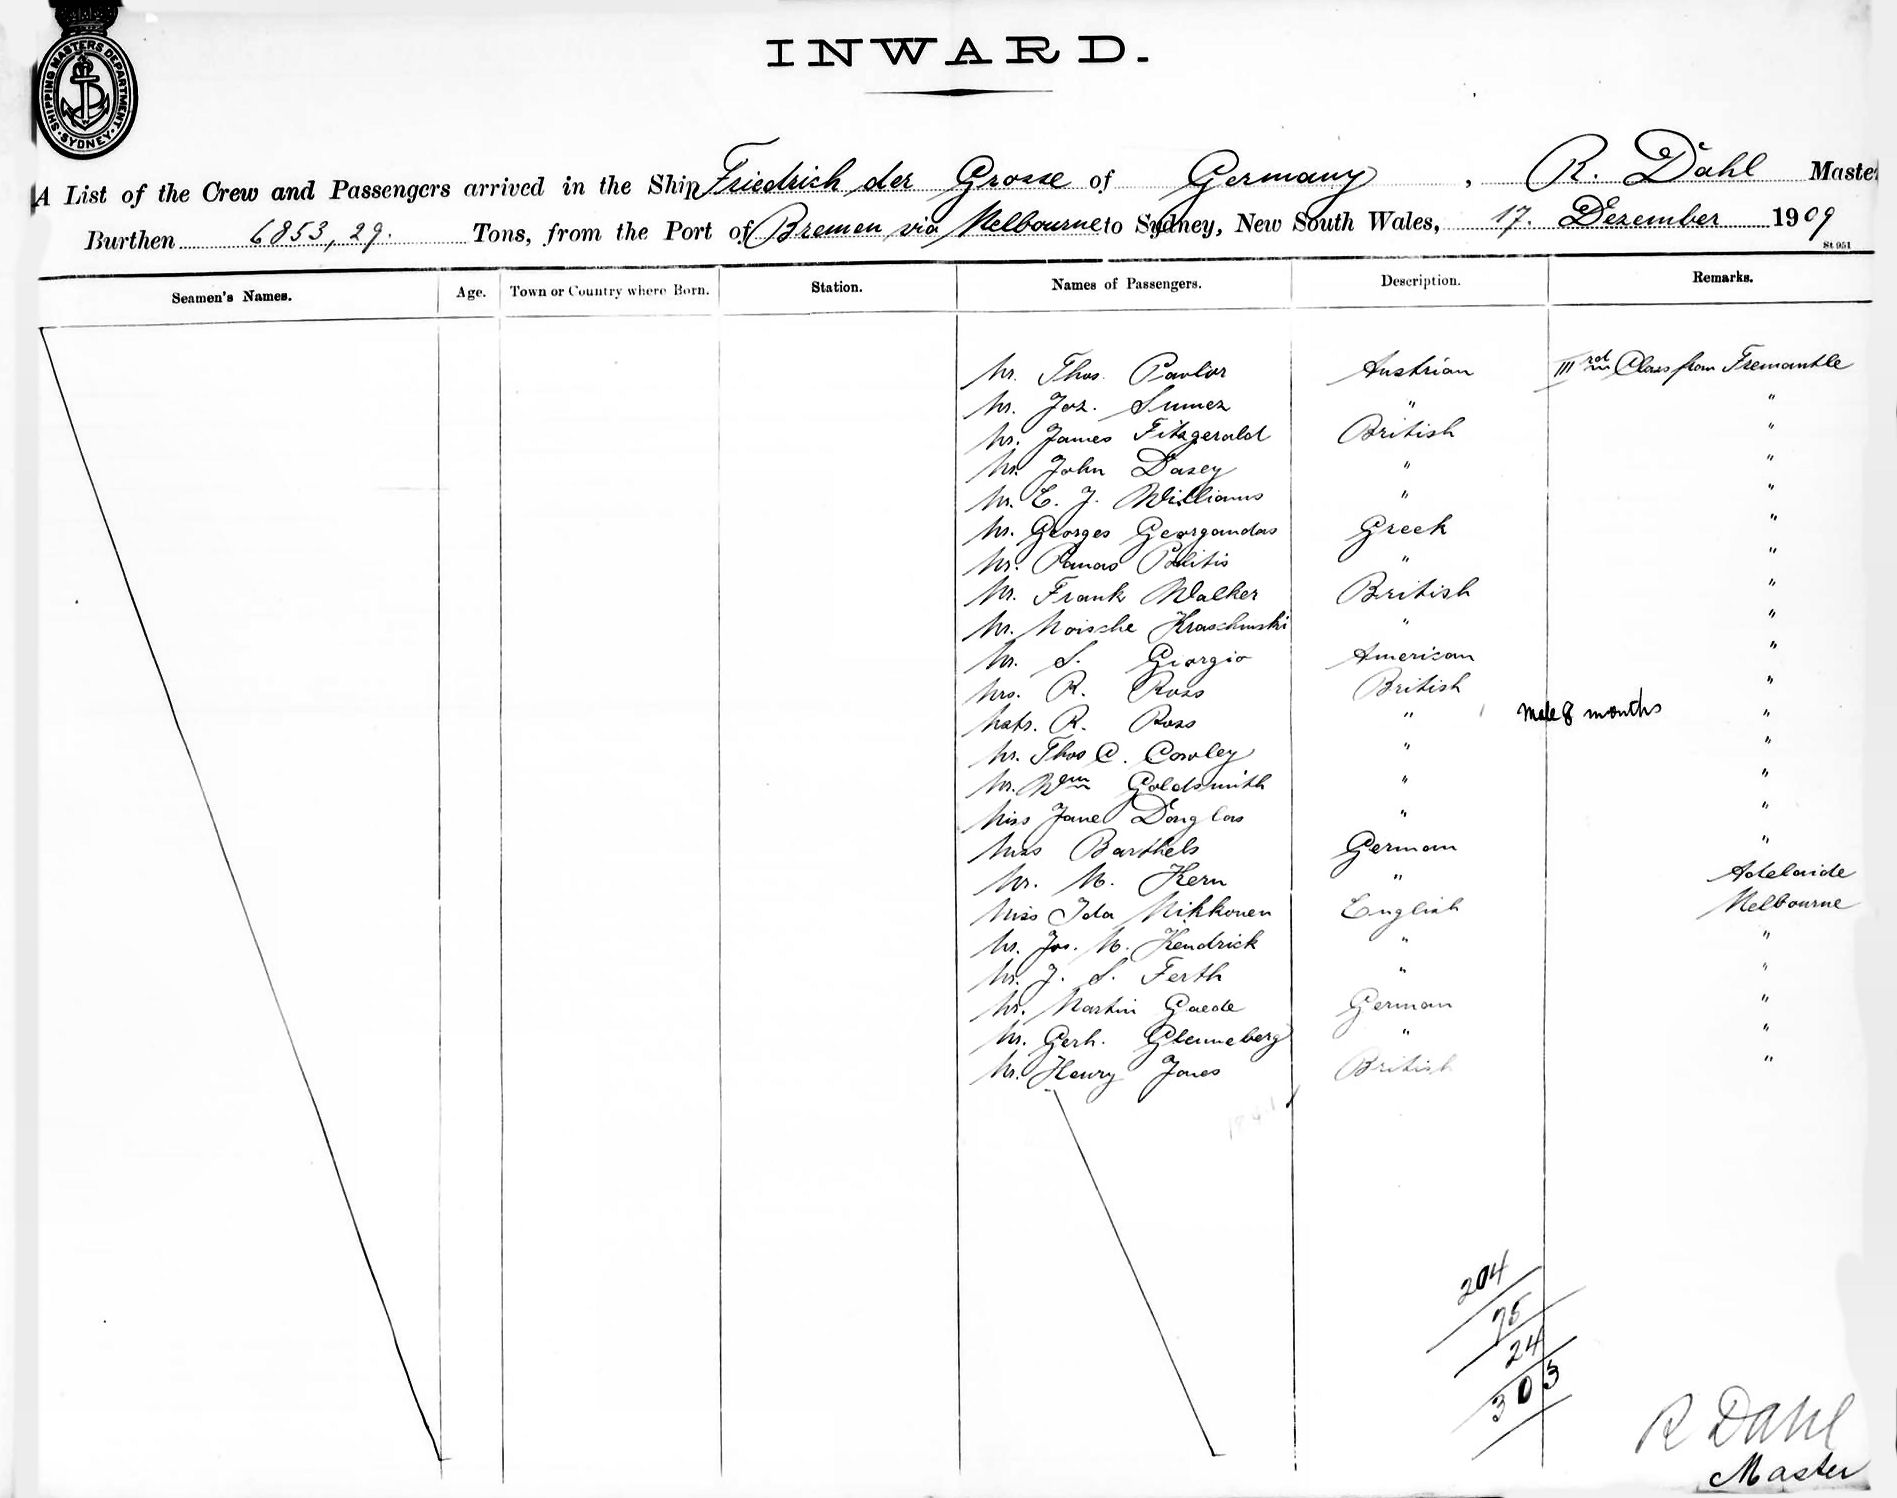 SHIPPING MASTERS DEPARTMENT · SYDNEY ·
INWARD.
A List of the Crew and Passengers arrived in the Ship Friedrich der Grosse of Germany, R. Dahl Master
Burthen 6853,29. Tons, from the Port of Bremen via Melbourne to Sydney, New South Wales, 17. Dezember 1909
St 951
Seamen's Names. Age. Town or Country where Born. Station. Names of Passengers. Description. Remarks.
Mr. Thos. Pavlor Austrian IIIrd Class from Fremantle
Mr. Joz. Sumez " "
Mr. James Fitzgerald British "
Mr. John Dasey " "
Mr. E. J. Williams " "
Mr. Georges Georgandas Greek "
Mr. Panao Politis " "
Mr. Frank Walker British "
Mr. Moische Kraschinski " "
Mr. S. Giorgio American "
Mrs. R. Ross British "
Mstr. R. Ross " Male 8 months "
Mr. Thos C. Cowley " "
Mr. Wm Goldsmith " "
Miss Jane Douglas " "
Miss Barthels German "
Mr. M. Kern " Adelaide
Miss Ida Mikkonen English Melbourne
Mr. Jos. M. Kendrick " "
Mr. J. S. Ferth " "
Mr. Martin Gaede German "
Mr. Gerh. Glenneberg " "
Mr. Henry Jones British "
204
75
24
303
R Dahl
Master